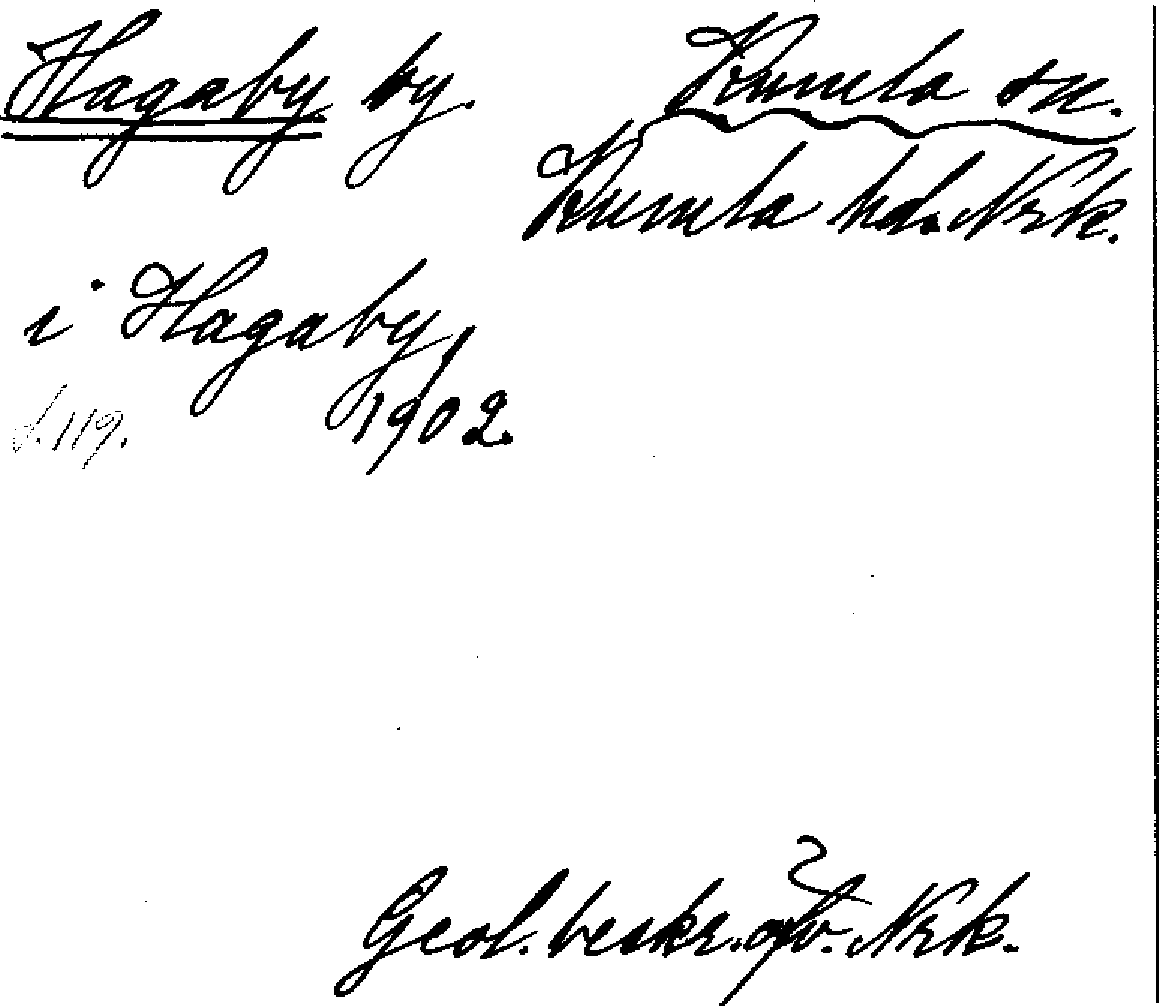 Hagaby by. Kumla sn.
Kumla hd. Nrk.
i Hagaby,
1902.
s. 119.
Geol. beskr. öfv. Nrk.